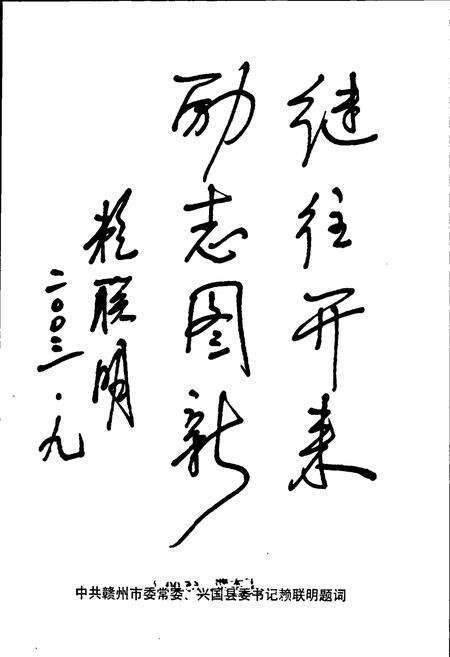 继往开来
励志图新
赖联明
二〇〇三·九
中共赣州市委常委、兴国县委书记赖联明题词